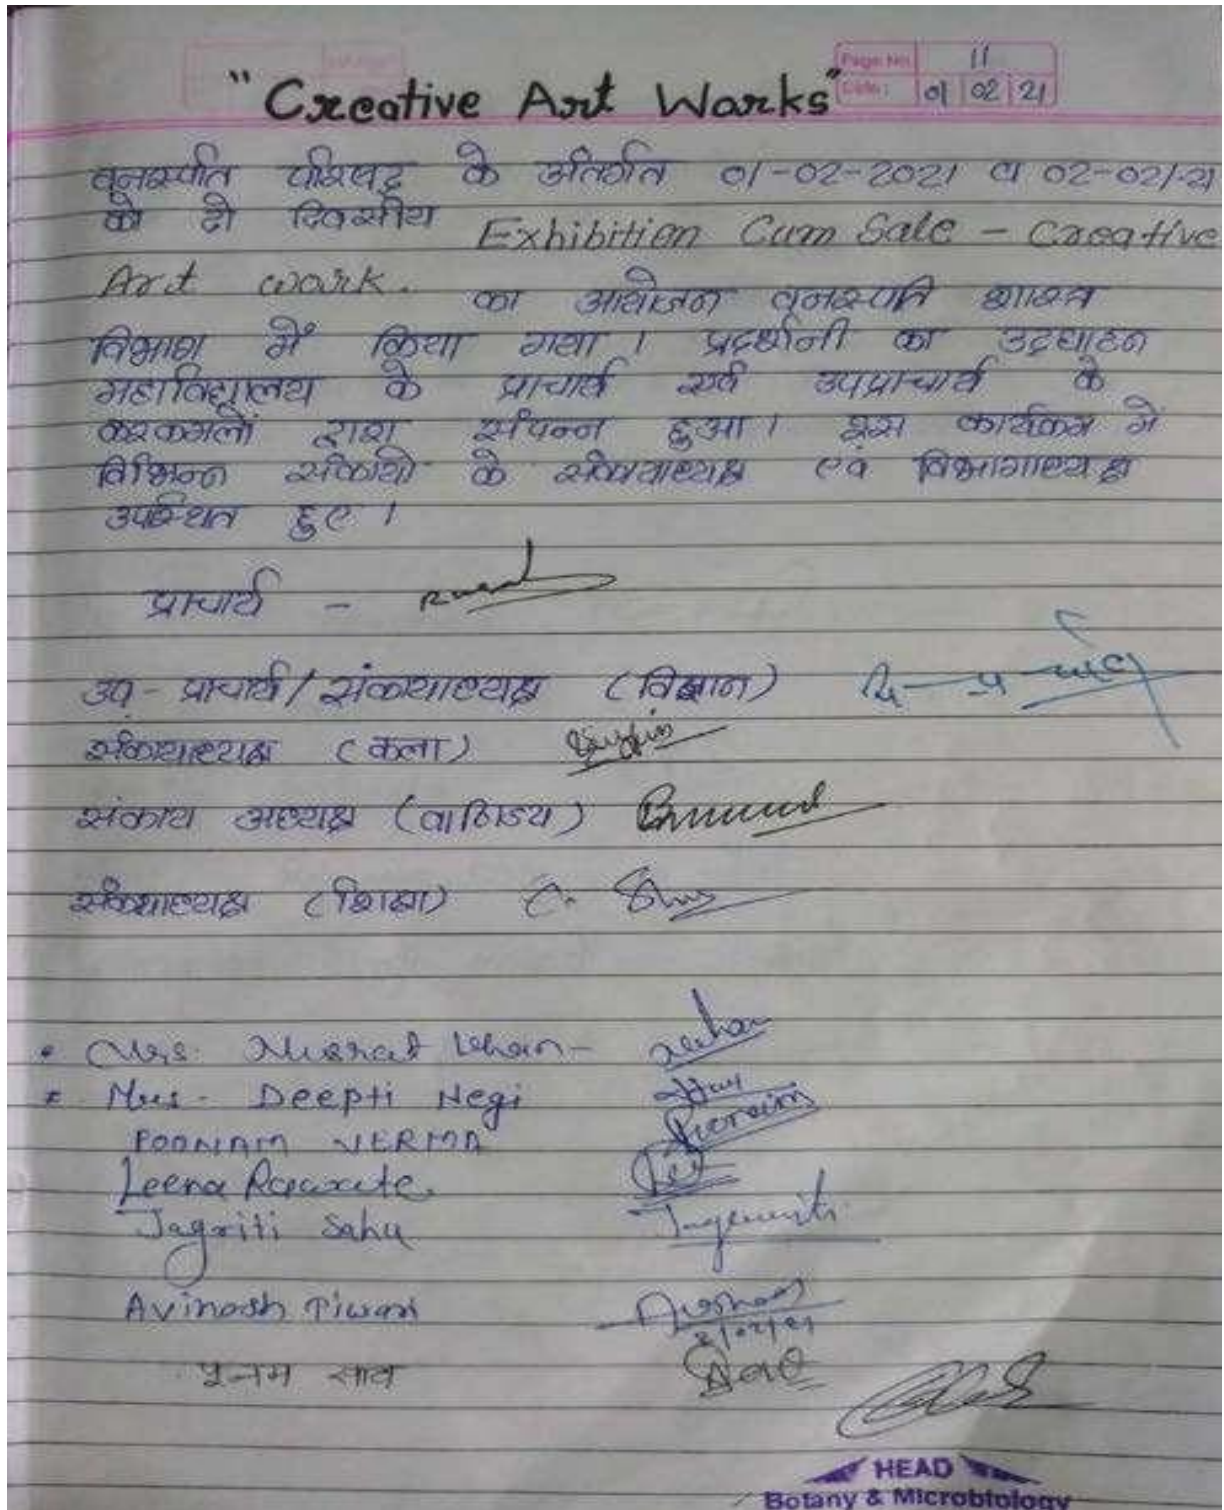 Page No. 11
Date: 01 02 21
"Creative Art Works"
वनस्पति परिषद् के अंतर्गत 01-02-2021 व 02-02-21
को दो दिवसीय Exhibition Cum Sale - Creative
Art work. का आयोजन वनस्पति शास्त्र
विभाग में किया गया । प्रदर्शनी का उद्घाटन
महाविद्यालय के प्राचार्य एवं उपप्राचार्य के
करकमलों द्वारा संपन्न हुआ । इस कार्यक्रम में
विभिन्न संकायो के संकायाध्यक्ष एवं विभागाध्यक्ष
उपस्थित हुए ।
प्राचार्य -
उप - प्राचार्य / संकायाध्यक्ष (विज्ञान)
संकायाध्यक्ष (कला)
संकाय अध्यक्ष (वाणिज्य)
संकायाध्यक्ष (शिक्षा)
Mrs. Nusrat Khan -
Mrs - Deepti Negi
POONAM VERMA
Leena
Jagriti Sahu
Avinash Tiwari
2/02/21
पूनम साव
HEAD
Botany & Microbiology